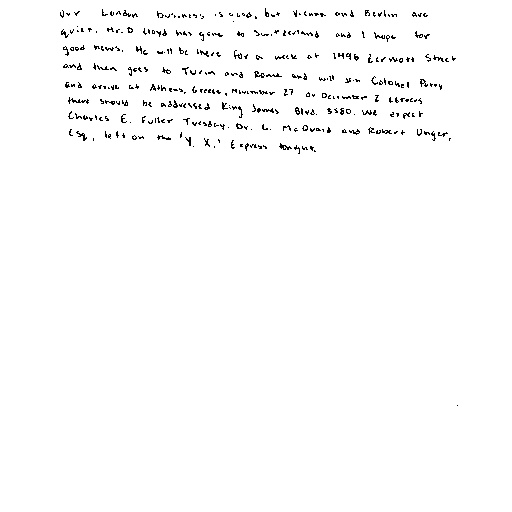 Our London business is good, but Vienna and Berlin are
quiet. Mr. D. Lloyd has gone to Switzerland and I hope for
good news. He will be there for a week at 1496 Zermott Street
and then goes to Turin and Rome and will join Colonel Parry
and arrive at Athens, Greece, November 27 or December 2 Letters
there should be addressed King James Blvd. 3580. We expect
Charles E. Fuller Tuesday. Dr. L. McQuaid and Robert Unger,
Esq., left on the 'Y. X.' Express tonight.